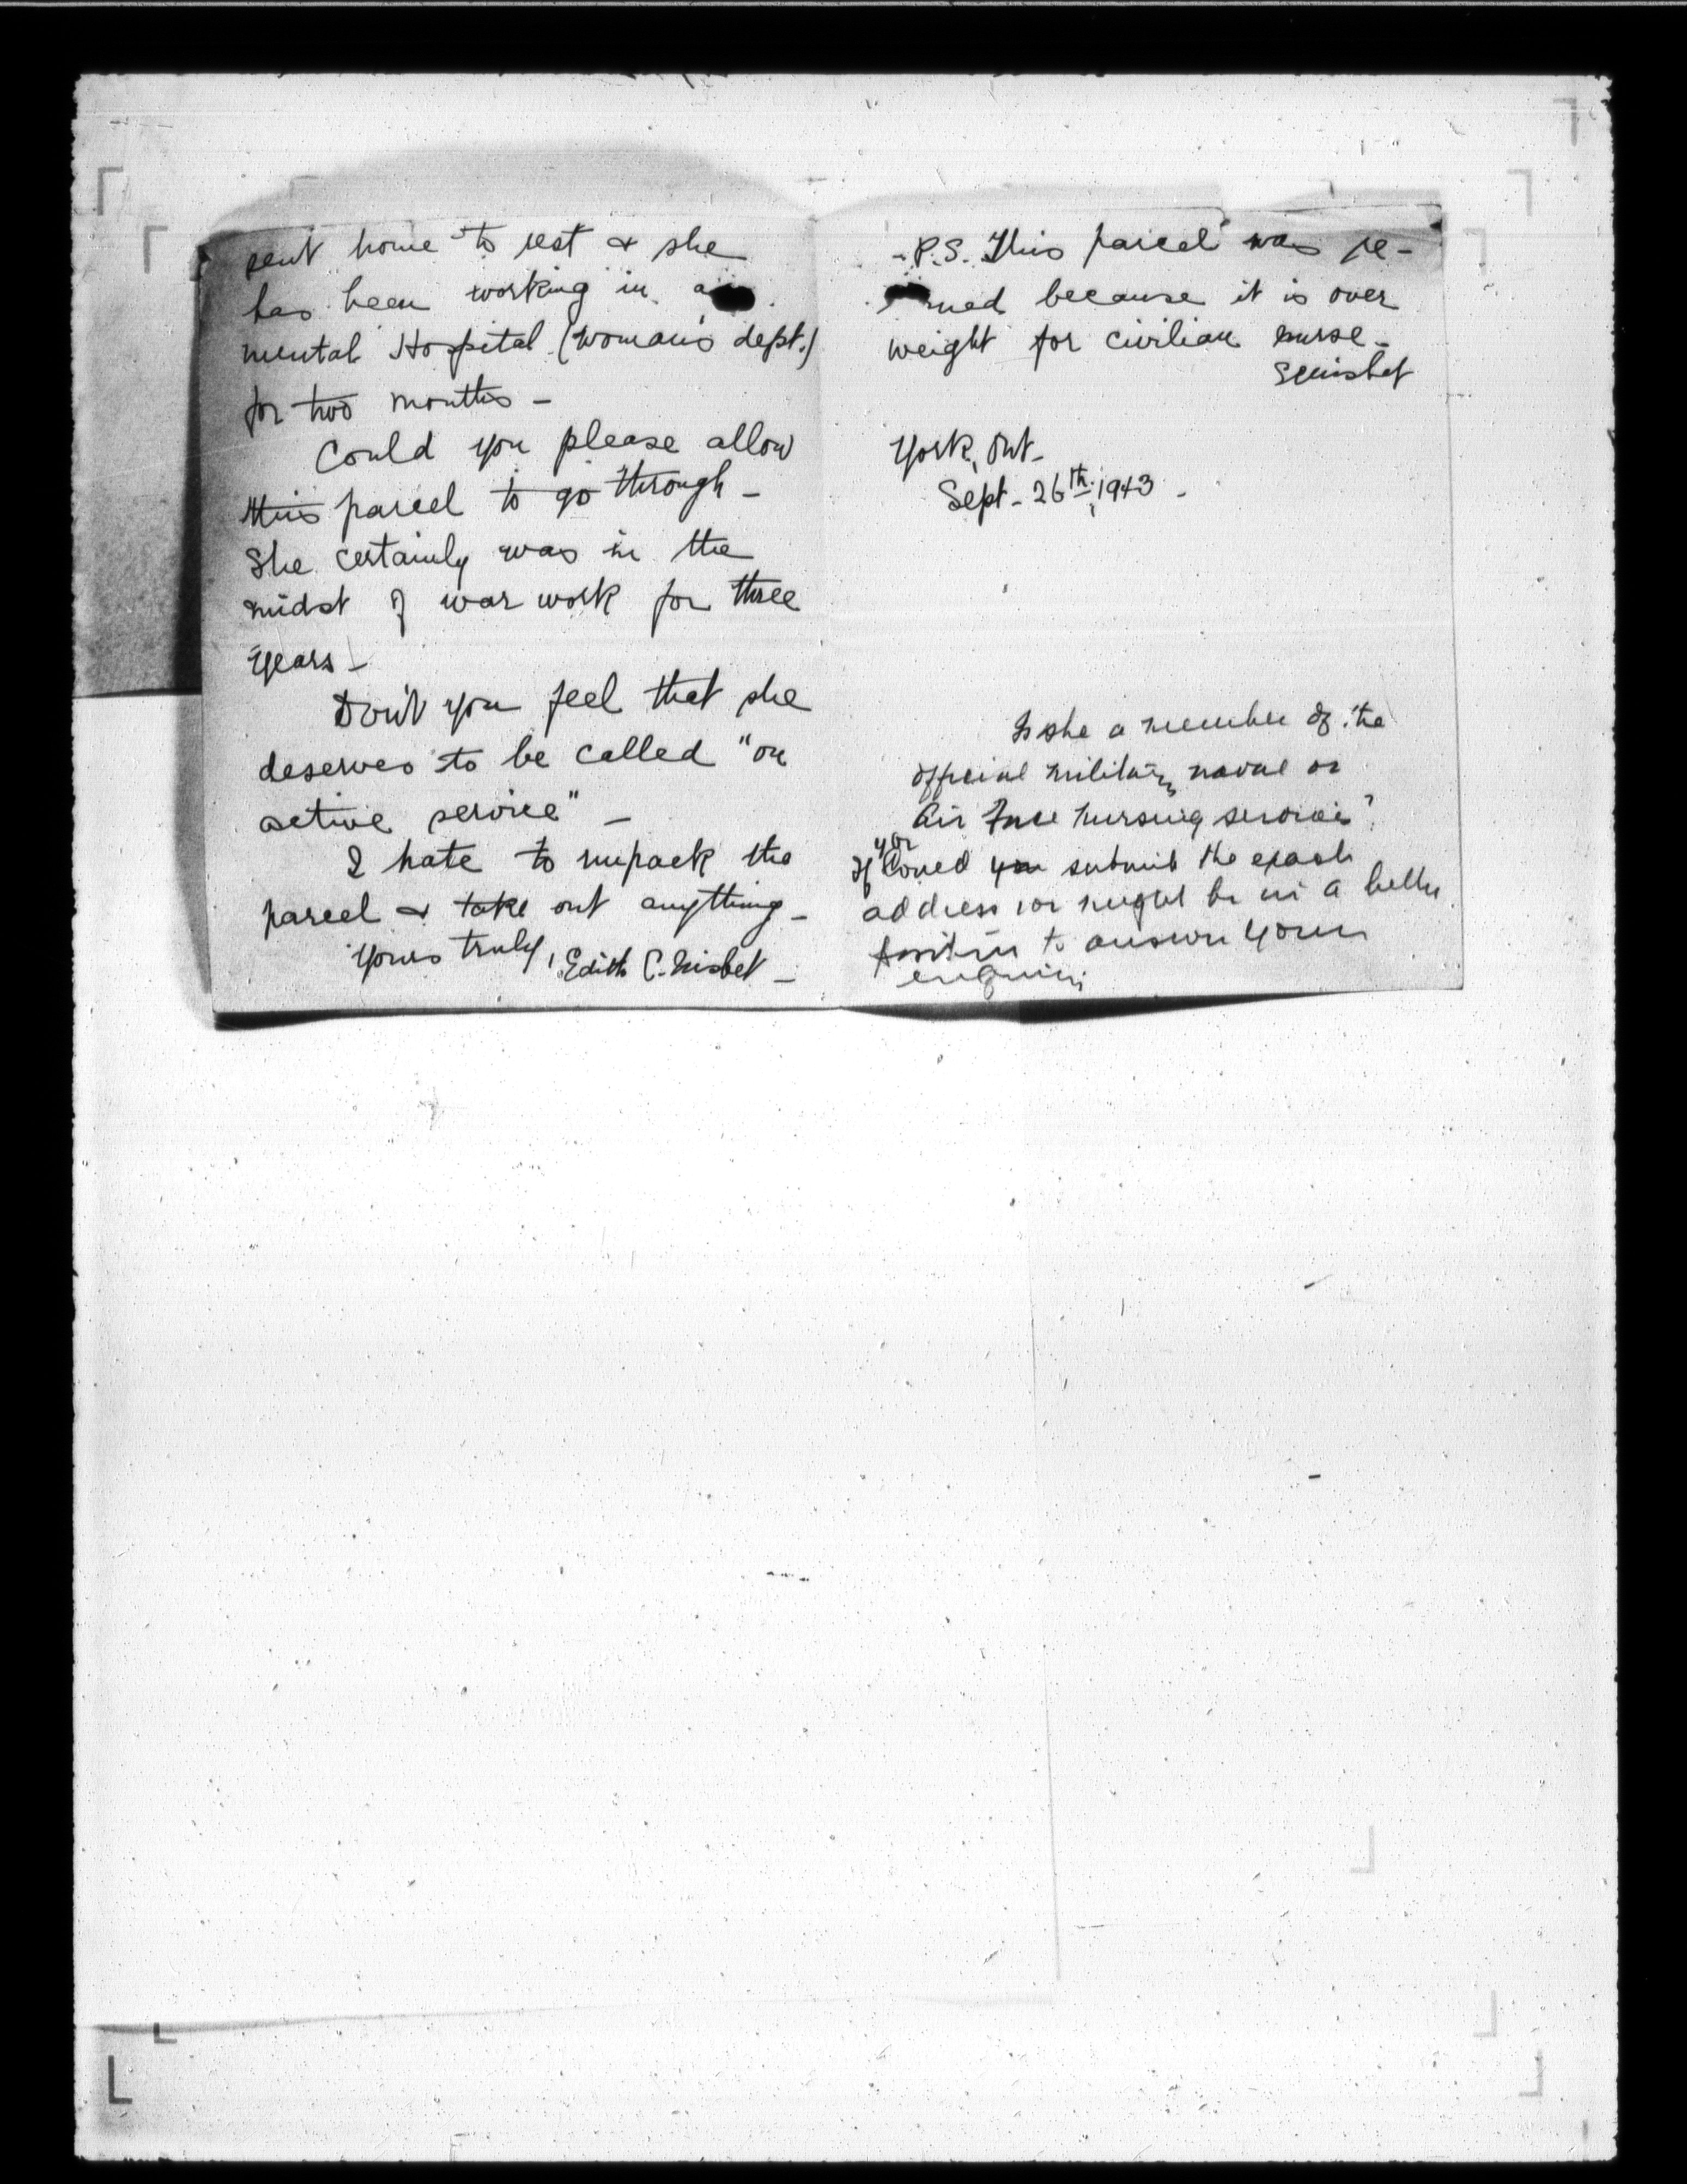 sent home to rest & she
has been working in a
mental Hospital (Woman's dept.)
for two months -
Could you please allow
this parcel to go through -
She certainly was in the
midst of war work for three
years -
Don't you feel that she
deserves to be called "on
active service" -
I hate to unpack the
parcel & take out anything -
Yours truly, Edith C. Nisbet -
- P.S. This parcel was re-
rned because it is over
weight for civilian nurse -
York, Ont -
Sept - 26th, 1943 -
Is she a member of the
official military, naval or
Air Force Nursing services?
If you could submit the exact
address we might be in a better
position to answer your
enquiry